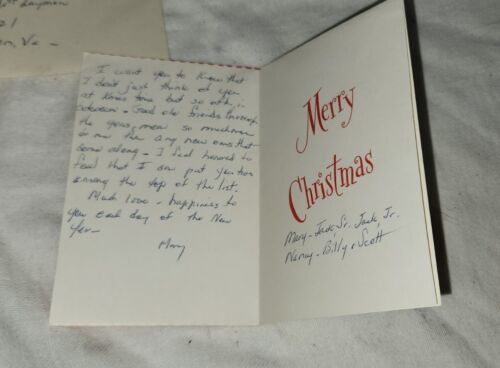 Layman
21
Va -
I want you to know that
I don't just think of you
at Xmas time but so often in
between. Good old friends through
the years mean so much more
to me than any new ones that
come along - I feel honored to
feel that I can put you two
among the top of the list.
Much love - happiness to
you each day of the New
Year -
Mary
Merry
Christmas
Mary - Jack, Sr. Jack, Jr.
Nancy - Billy & Scott